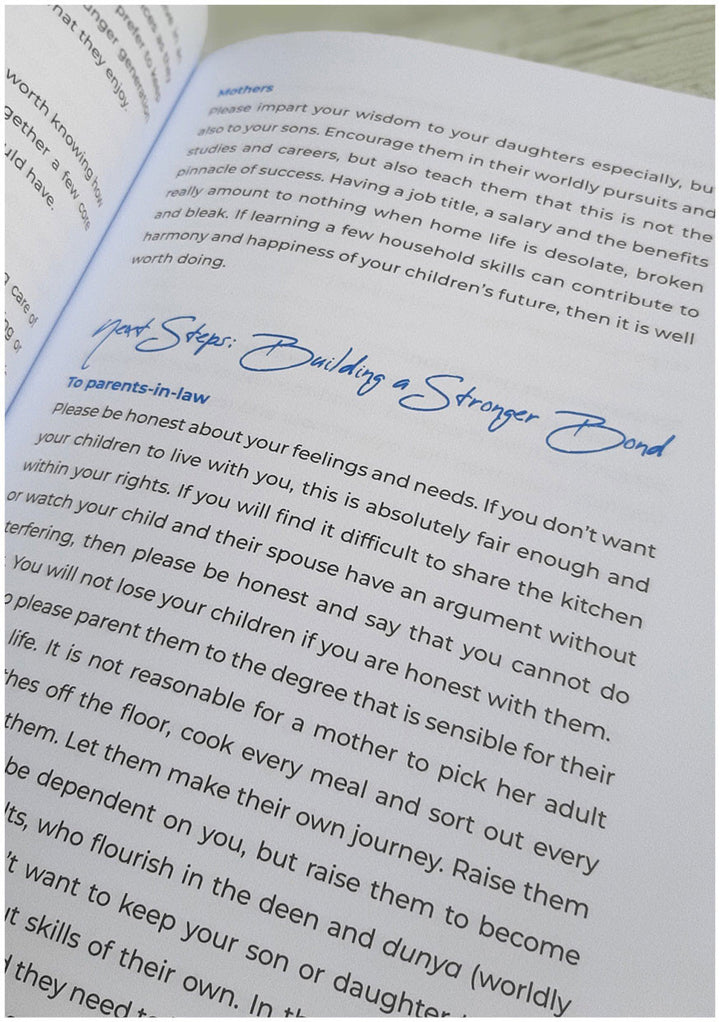 hat they enjoy.
unger generation
prefer to keep
as they
worth knowing how
gether a few core
uld have.
care of
or
Mothers
Please impart your wisdom to your daughters especially, bu
also to your sons. Encourage them in their worldly pursuits and
studies and careers, but also teach them that this is not the
pinnacle of success. Having a job title, a salary and the benefits
really amount to nothing when home life is desolate, broken
and bleak. If learning a few household skills can contribute to
harmony and happiness of your children's future, then it is well
worth doing.
Next Steps: Building a Stronger Bond
To parents-in-law
Please be honest about your feelings and needs. If you don't want
your children to live with you, this is absolutely fair enough and
within your rights. If you will find it difficult to share the kitchen
or watch your child and their spouse have an argument without
terfering, then please be honest and say that you cannot do
. You will not lose your children if you are honest with them.
o please parent them to the degree that is sensible for their
life. It is not reasonable for a mother to pick her adult
hes off the floor, cook every meal and sort out every
them. Let them make their own journey. Raise them
be dependent on you, but raise them to become
lts, who flourish in the deen and dunya (worldly
't want to keep your son or daughter
ut skills of their own. In th
d they need to